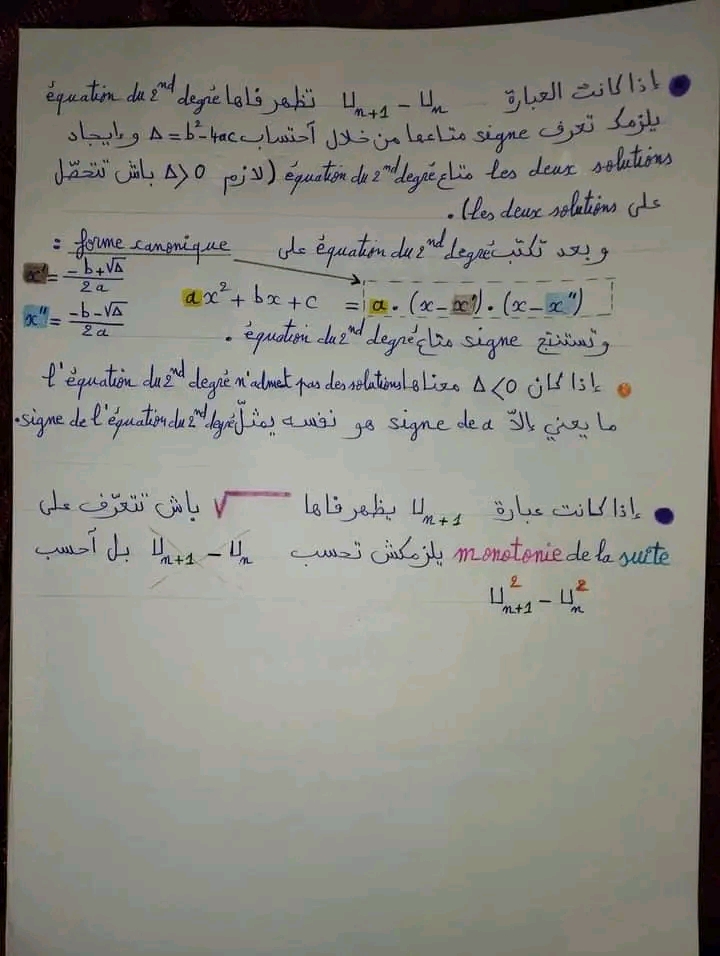 ● إذا كانت العبارة Uₙ₊₁ - Uₙ تظهر فاها équation du 2nd degré
يلزمك تعرف signe متاعها من خلال آحتساب Δ = b² - 4ac و إيجاد
les deux solutions متاع équation du 2nd degré (لازم Δ > 0 باش تتحصّل
على les deux solutions).
و بعد تكتب équation du 2nd degré على forme canonique :
x' = (-b + √Δ) / 2a
ax² + bx + c = a · (x - x') · (x - x'')
x'' = (-b - √Δ) / 2a
وتستنتج signe متاع équation du 2nd degré .
● إذا كان Δ < 0 معناها l'équation du 2nd degré n'admet pas des solutions
ما يعني إلاّ signe de a هو نفسه يمثّل signe de l'équation du 2nd degré.
● إذا كانت عبارة Uₙ₊₁ يظهر فاها √ باش تتعرّف على
monotonie de la suite يلزمكش تحسب Uₙ₊₁ - Uₙ بل آحسب
U²ₙ₊₁ - U²ₙ